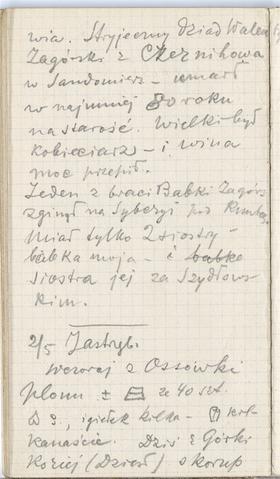 wia. Stryjeczny Dziad Walen
Zagórski z Czernihowa
w Sandomierz – umarł
w najmniej 80 roku
na starość. Wielki był
kobieciarz – i wina
moc przepił.
Jeden z braci Babki Zagórs
zginął na Syberyi pod
Miał tylko 2 siostry –
babka moja – i babke
siostra jej za Szydłows
kim.
2/5 Jastrzęb.
wczoraj z Ossówki
plonu ± ze 40 szt.
3, igiełek kilka –
kanaście. Dziś z Górki
Koziej (Dział) skorup